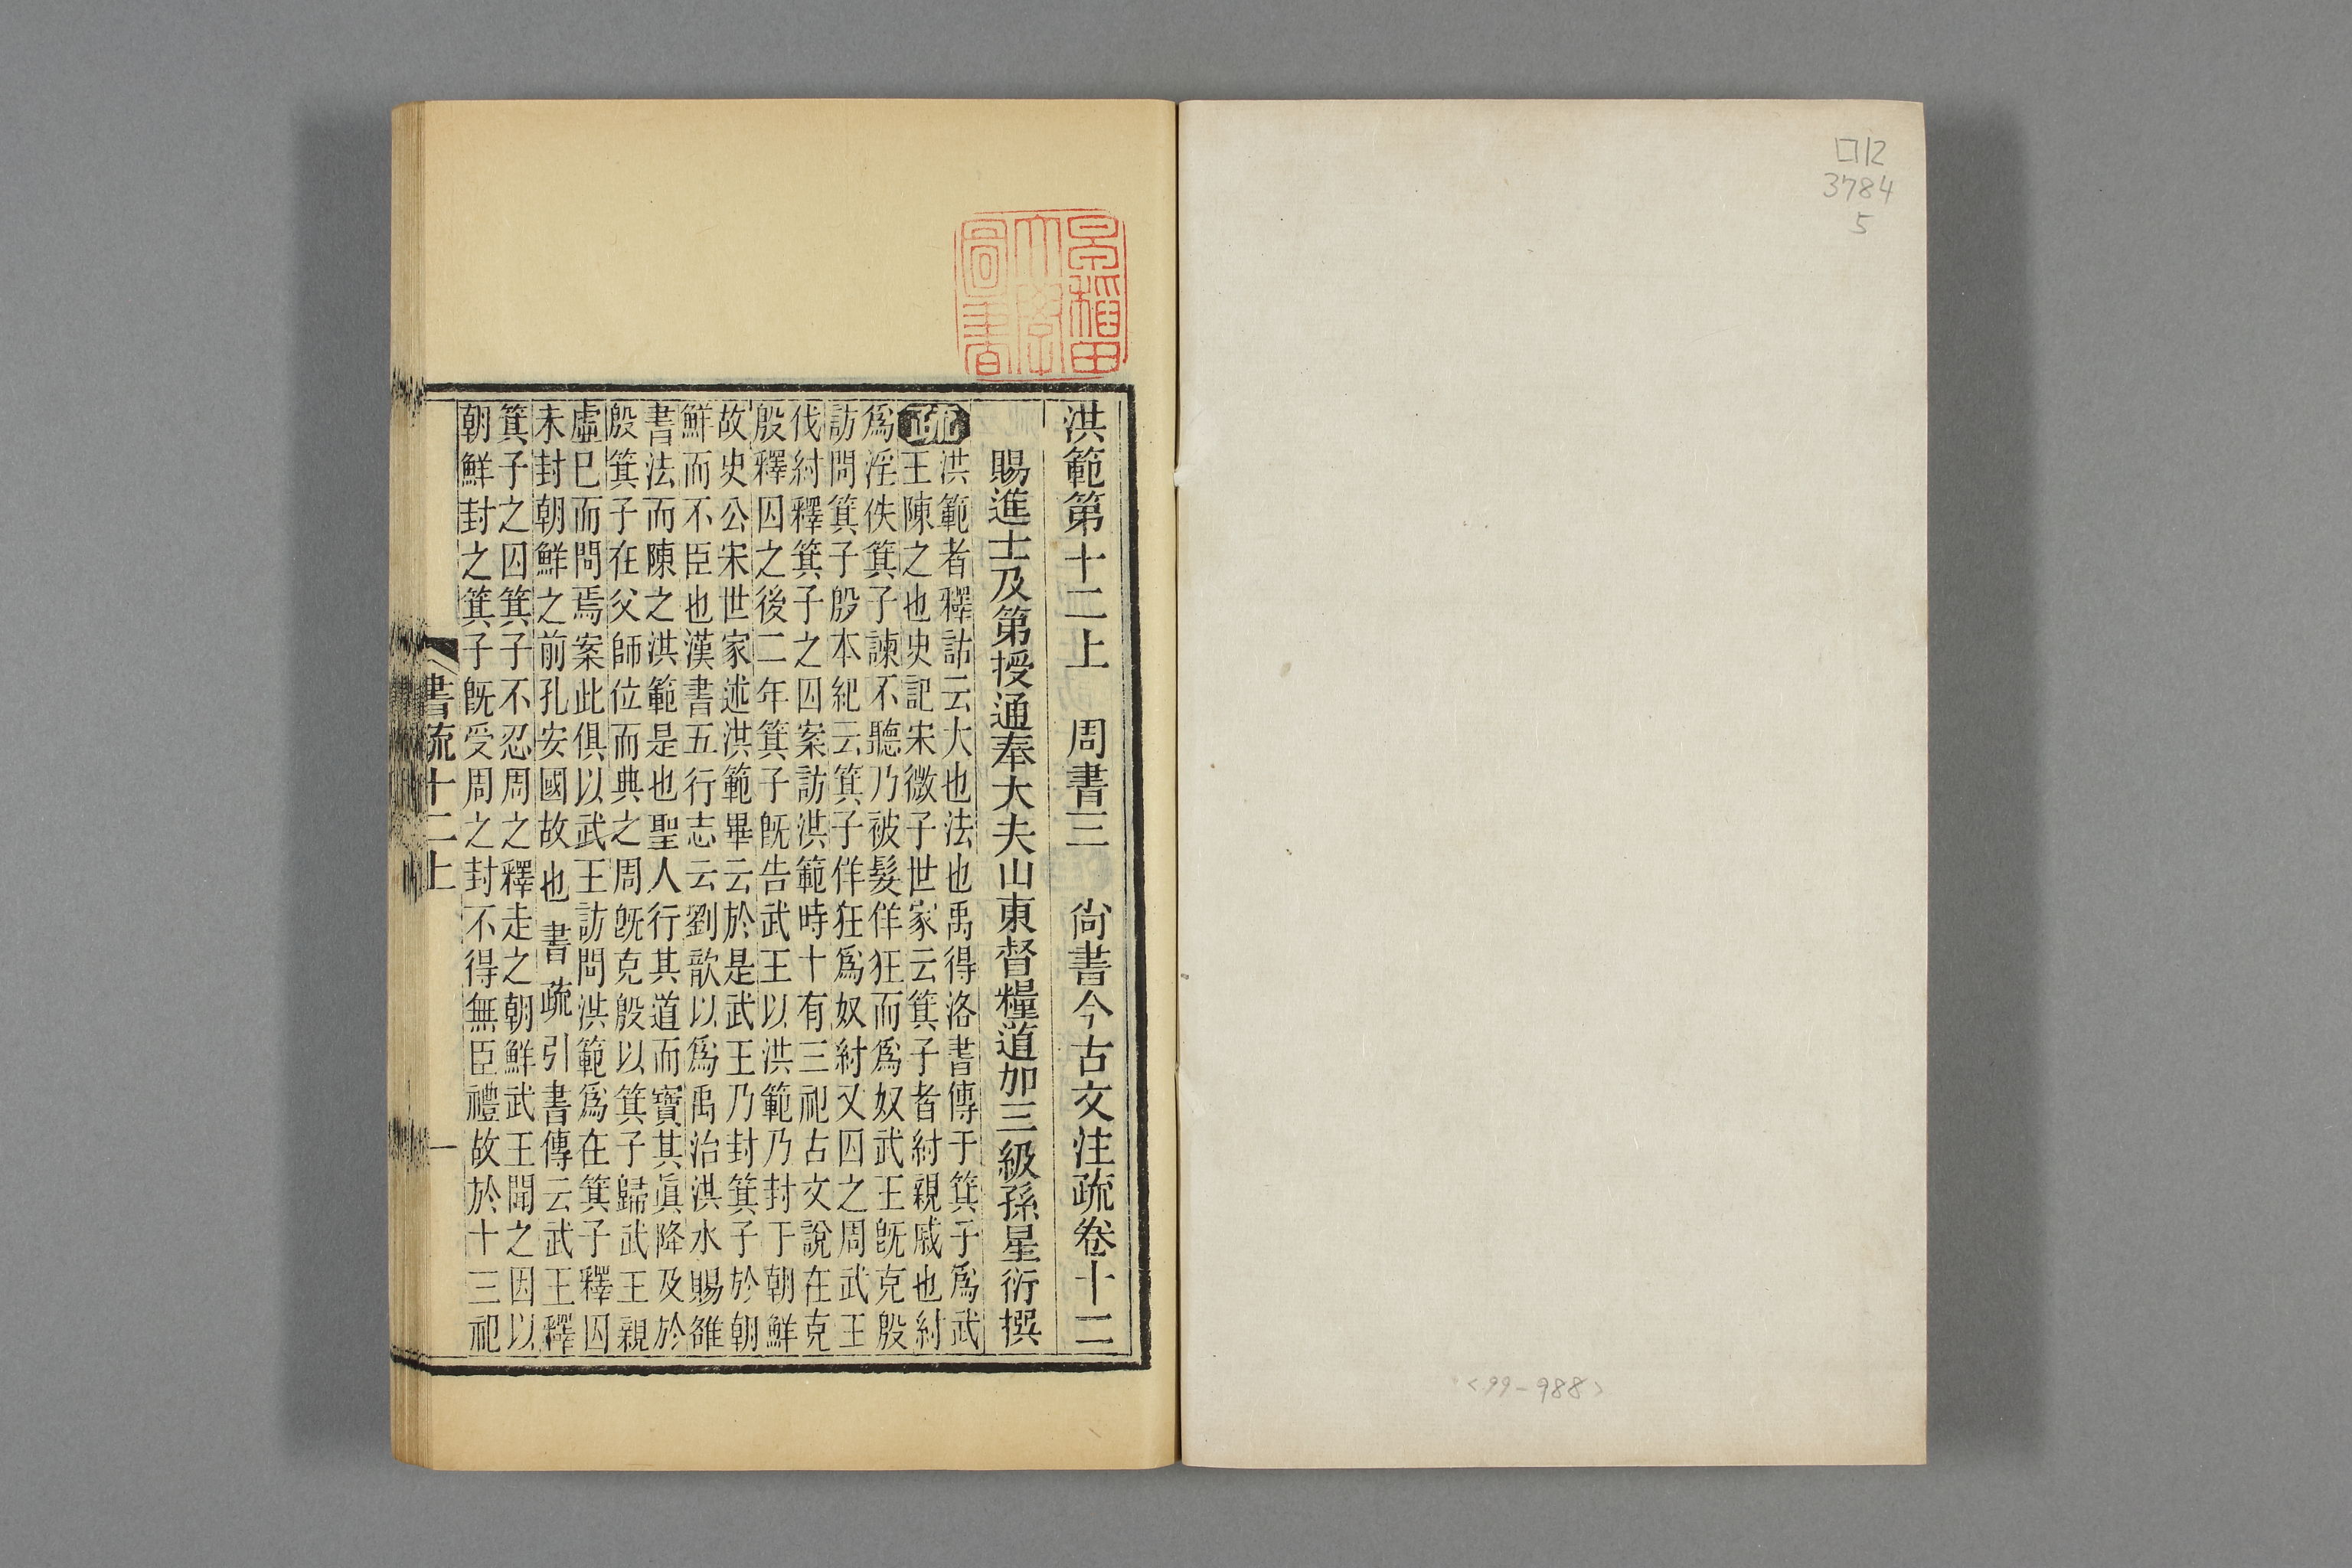 口12
3784
5
<99-988>
早稲田
大學
圖書
洪範第十二上 周書三 尙書今古文注疏卷十二
賜進士及第授通奉大夫山東督糧道加三級孫星衍撰
疏
洪範者釋詁云大也法也禹得洛書傳于箕子爲武
王陳之也史記宋微子世家云箕子者紂親戚也紂
爲淫佚箕子諫不聽乃被髮佯狂而爲奴武王旣克殷
訪問箕子殷本紀云箕子佯狂爲奴紂又囚之周武王
伐紂釋箕子之囚案訪洪範時十有三祀古文說在克
殷釋囚之後二年箕子旣告武王以洪範乃封于朝鮮
故史公宋世家述洪範畢云於是武王乃封箕子於朝
鮮而不臣也漢書五行志云劉歆以爲禹治洪水賜雒
書法而陳之洪範是也聖人行其道而寶其眞降及於
殷箕子在父師位而典之周旣克殷以箕子歸武王親
虛已而問焉案此俱以武王訪問洪範爲在箕子釋囚
未封朝鮮之前孔安國故也書疏引書傳云武王釋
箕子之囚箕子不忍周之釋走之朝鮮武王聞之因以
朝鮮封之箕子旣受周之封不得無臣禮故於十三祀
書疏十二上 一